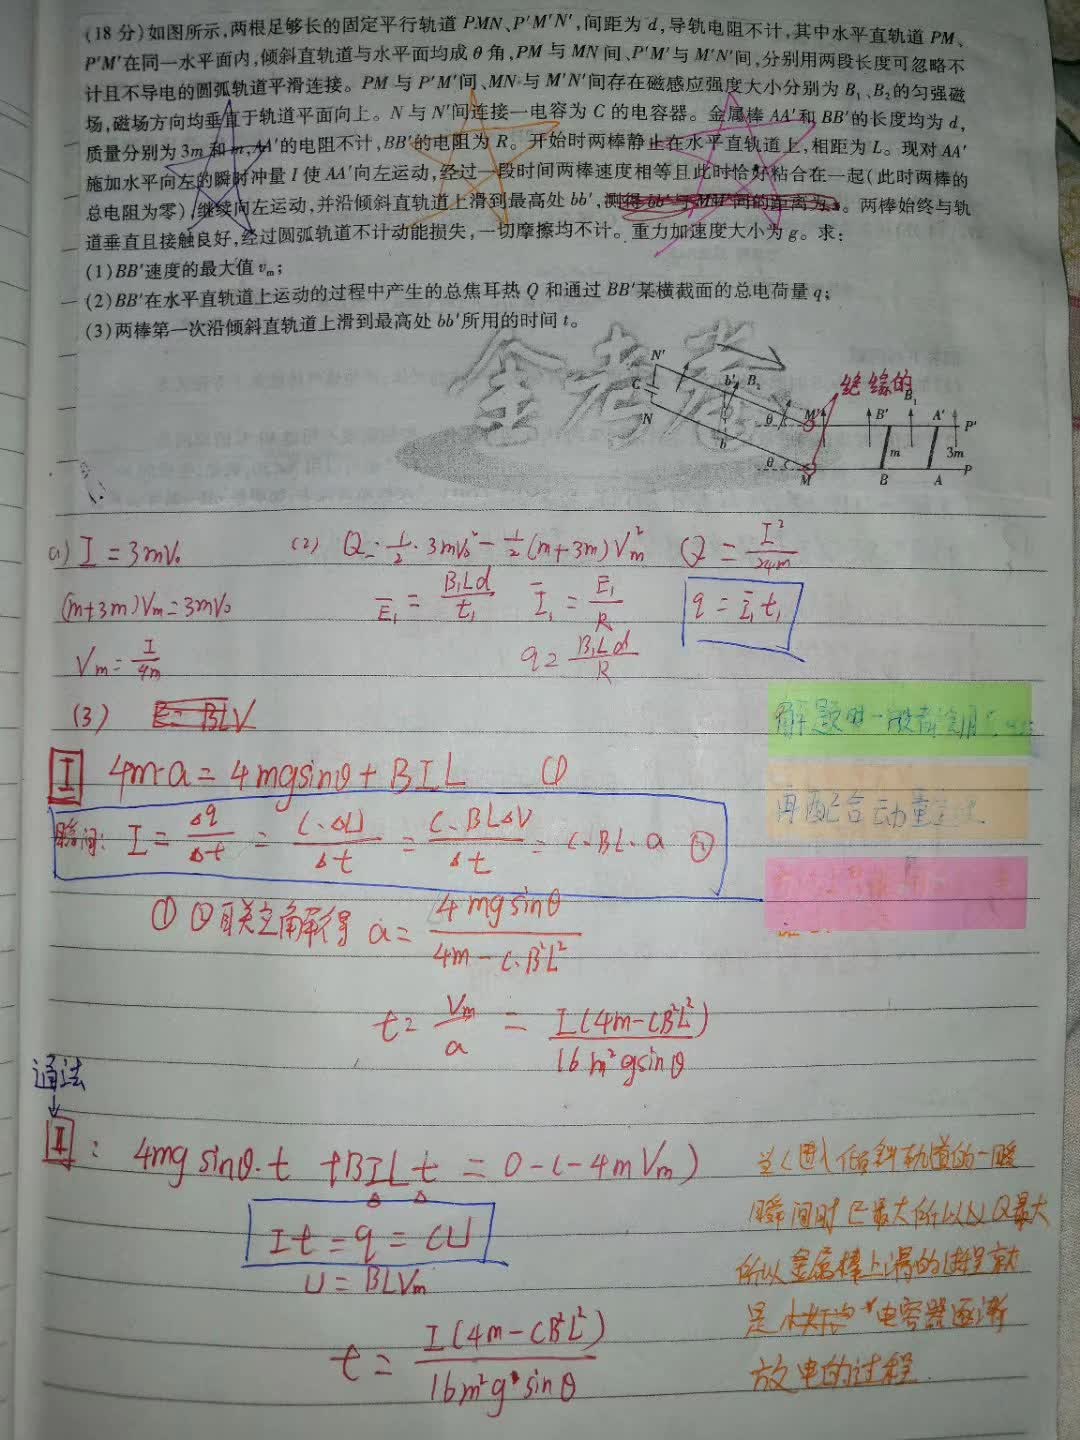 (18分)如图所示,两根足够长的固定平行轨道PMN、P'M'N',间距为d,导轨电阻不计,其中水平直轨道PM、
P'M'在同一水平面内,倾斜直轨道与水平面均成θ角,PM与MN间、P'M'与M'N'间,分别用两段长度可忽略不
计且不导电的圆弧轨道平滑连接。PM与P'M'间、MN与M'N'间存在磁感应强度大小分别为B₁、B₂的匀强磁
场,磁场方向均垂直于轨道平面向上。N与N'间连接一电容为C的电容器。金属棒AA'和BB'的长度均为d,
质量分别为3m和m,AA'的电阻不计,BB'的电阻为R。开始时两棒静止在水平直轨道上,相距为L。现对AA'
施加水平向左的瞬时冲量I使AA'向左运动,经过一段时间两棒速度相等且此时恰好粘合在一起(此时两棒的
总电阻为零),继续向左运动,并沿倾斜直轨道上滑到最高处bb',测得bb'与MM'间的距离为x。两棒始终与轨
道垂直且接触良好,经过圆弧轨道不计动能损失,一切摩擦均不计。重力加速度大小为g。求:
(1)BB'速度的最大值vₘ;
(2)BB'在水平直轨道上运动的过程中产生的总焦耳热Q和通过BB'某横截面的总电荷量q;
(3)两棒第一次沿倾斜直轨道上滑到最高处bb'所用的时间t。
金考卷
N' C N b' B₂ b θ θ M' M 绝缘的 B₁ B' m B A' 3m A P' P
(1) I = 3mV₀ (2) Q = 1/2 · 3mV₀² - 1/2 (m+3m) Vm² Q = I²/24m
(m+3m)Vm = 3mV₀ E̅₁ = B₁Ld/t₁ I̅₁ = E̅₁/R q = I̅₁t₁
Vm = I/4m q = B₁Ld/R
(3) E = BLV
解题时一般都
再配合动量定理
I 4m·a = 4mgsinθ + BIL ①
瞬间: I = Δq/Δt = C·ΔU/Δt = C·BLΔV/Δt = C·BL·a ②
① ②联立解得 a = 4mgsinθ/4m - C·B²L²
t = Vm/a = I(4m-CB²L²)/16m²gsinθ
通法
II: 4mgsinθ·t + BILt = 0-(-4mVm)
It = q = CU
U = BLVm
t = I(4m-CB²L²)/16m²g sinθ
当(进)倾斜轨道的一瞬
瞬间时E最大所以U Q最大
所以金属棒上滑的过程就
是 电容器逐渐
放电的过程.